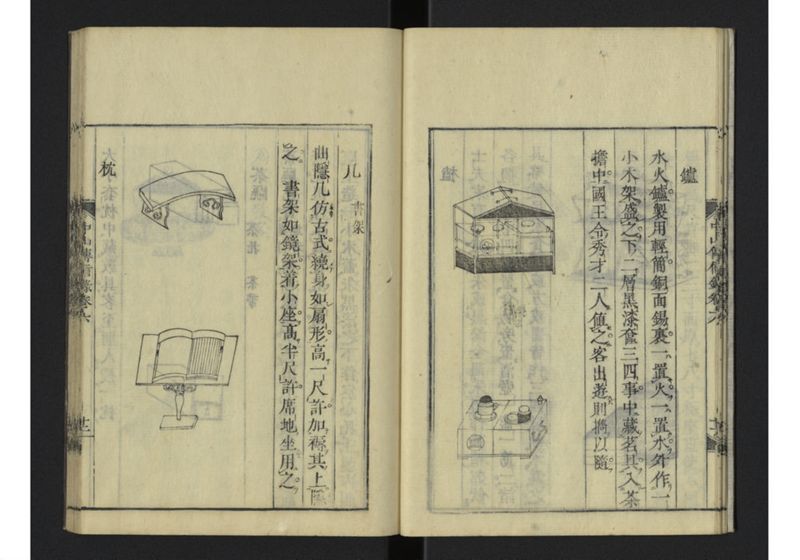 鑪
水火鑪製用輕簡銅面錫裏一置火一置水外作一
小木架盛之下二層黑漆奩三四事中藏茗具入茶
擔中國王令秀才二人值之客出遊則攜以隨
几 書架
曲隱几仿古式繞身如扇形高一尺許加褥其上隱
之 書架如鏡架着小座高半尺許席地坐用之
枕
中山傳信錄卷六